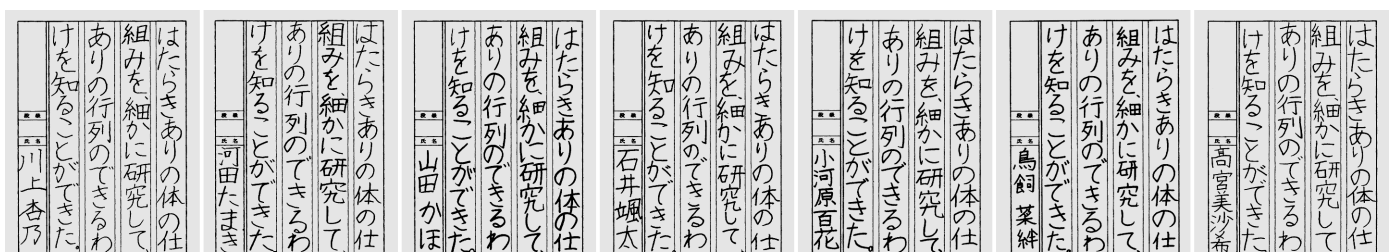 はたらきありの体の仕
組みを、細かに研究して、
ありの行列のできるわ
けを知ることができた。
段級
氏名
川上杏乃
はたらきありの体の仕
組みを、細かに研究して、
ありの行列のできるわ
けを知ることができた
段級
氏名
河田たまき
はたらきありの体の仕
組みを、細かに研究して、
ありの行列のできるわ
けを知ることができた。
段級
氏名
山田かほ
はたらきありの体の仕
組みを、細かに研究して、
ありの行列のできるわ
けを知ることができた
段級
氏名
石井颯太
はたらきありの体の仕
組みを、細かに研究して、
ありの行列のできるわ
けを知ることができた。
段級
氏名
小河原百花
はたらきありの体の仕
組みを、細かに研究して、
ありの行列のできるわ
けを知ることができた。
段級
氏名
鳥飼菜絆
はたらきありの体の仕
組みを、細かに研究して
ありの行列のできるわ
けを知ることができた
段級
氏名
高宮美沙希